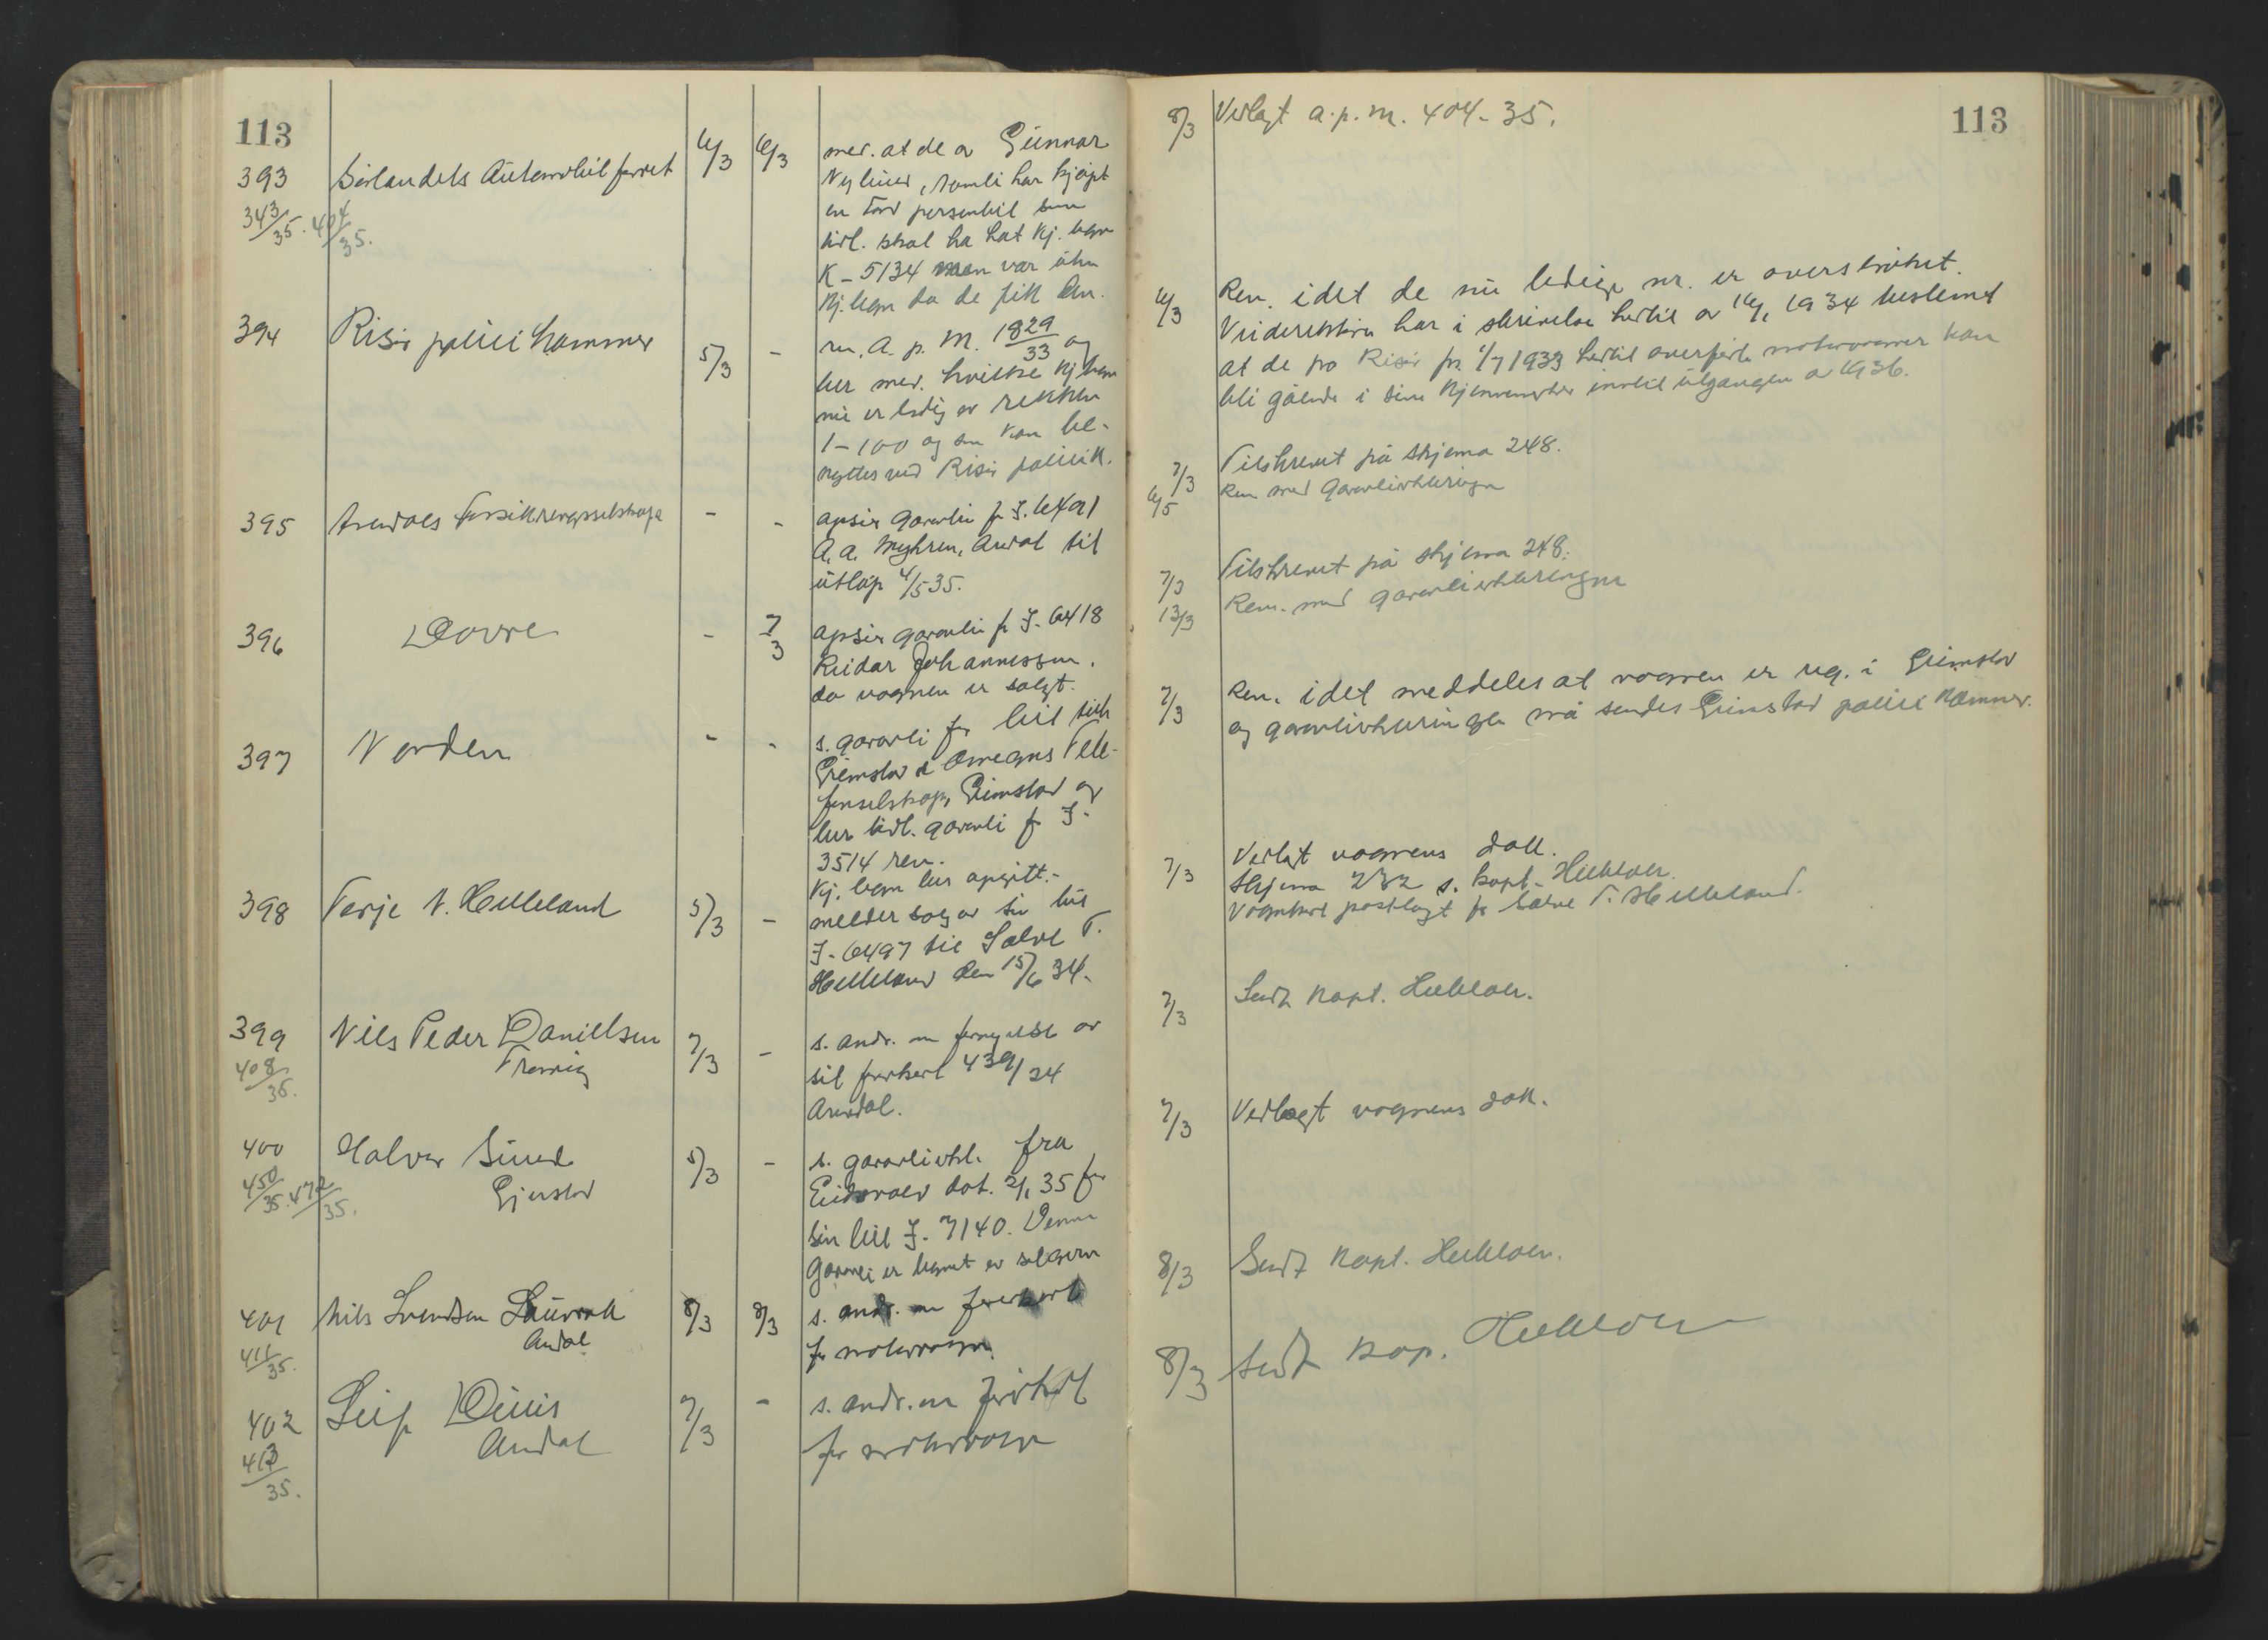 113
393
343/35. 404/35.
Sørlandets Automobilforret
6/3
6/3
med. at de av Gunnar
Nylund, Tomli har kjøpt
en Ford personbil som
tidl. skal ha hat kj. tegn
K-5134 men var uten
kj. tegn da de fikk den.
394
Risør politikammer
5/3
-
ren. A. p. M. 1829/33 og
ber med. hvilke kj. tegn
nu er ledig av rekken
1-100 og som kan be-
nyttes ved Risør politik.
395
Arendals Forsikringsselskap
-
-
opsier garanti for I. 6491
A. A. Myhren, Arendal til
utløp 4/5 35.
396
Dovre
-
7/3
opsier garanti for I-6418
Reidar Johannessen.
da vognen er solgt.
397
Norden
-
-
s. garanti for bil tilh
Grimstad & Omegns Tele-
fonselskap, Grimstad og
ber tidl. garanti for I-
3514 ren.
Kj. tegn bes opgitt.-
398
Terje N. Helleland
5/3
-
melder salg av sin bil
I-6497 til Salve T.
Helleland den 15/6 34.
399
408/35.
Nils Peder Danielsen
Tromøy
7/3
-
s. andr. om fornyelse av
sit førerkort 439/34
Arendal.
400
450/35. 472/35.
Halvor Sunde
Gjerstad
5/3
-
s. garantierkl. fra
Eidsvold dat. 2/1 35 for
sin bil I-7140. Denne
garanti er tegnet av selgeren
401
411/35.
Nils Svendsen Laurvik
Arendal
8/3
8/3
s. andr. om førerkort
for motorvogn.
402
413/35.
Leif Duus
Arendal
7/3
-
s. andr. om førerkort
for motorvogn
113
8/3
Vedlagt a.p.m. 404-35.
6/3
Ren. idet de nu ledige nr. er overstrøket.
Veidirektøren har i skrivelse hertil av 16/1 1934 bestemt
at de fra Risør pr. 1/7 1933 hertil overførte motorvogner kan
bli gående i sine kjennemerker inntil utgangen av 1936.
7/3
Tilskrevet på skjema 248.
6/5
Ren med garantierklæringen
7/3
Tilskrevet på skjema 248.
13/3
Ren. med garantierklæringen
7/3
Ren. idet meddeles at vognen er reg. i Grimstad
og garantierklæringen må sendes Grimstad politikammer.
7/3
Vedlagt vognens dok.
Skjema 232 s. kapt.
Vognkort postlagt for Salve T. Helleland.
7/3
Sendt kapt.
7/3
Vedlagt vognens dok.
8/3
Sendt kapt.
8/3
Sendt kap.